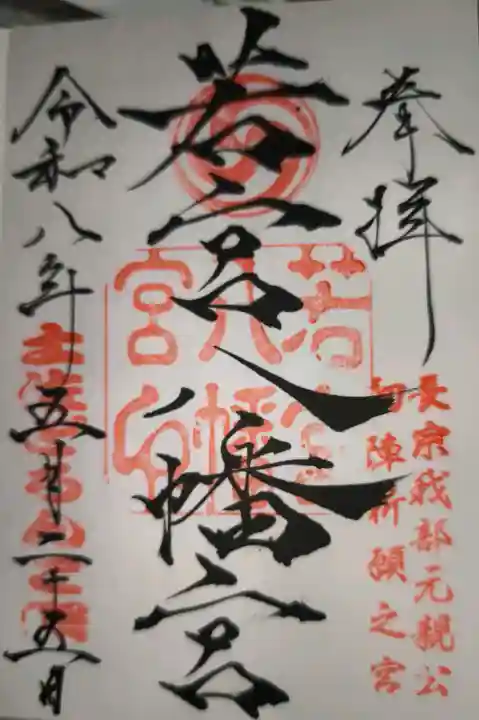 奉拝
長宗我部元親公
初陣祈願之宮
若宮八幡宮
若宮
八幡
宮印
令和八年五月二十五日